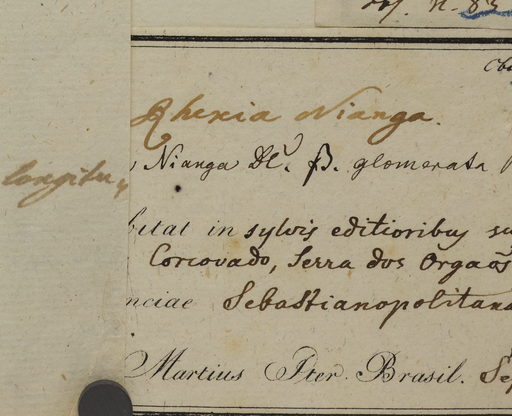 Rhexia Nianga.
Nianga DC. β. glomerata
longitu
bitat in sylvis editioribus su
Corcovado, Serra dos Orgaõs
nciae Sebastianopolitana
Martius Iter Brasil. Sep